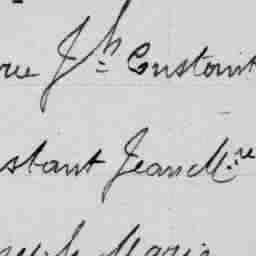 rue Jh Constant
stant Jean Mre
Marie